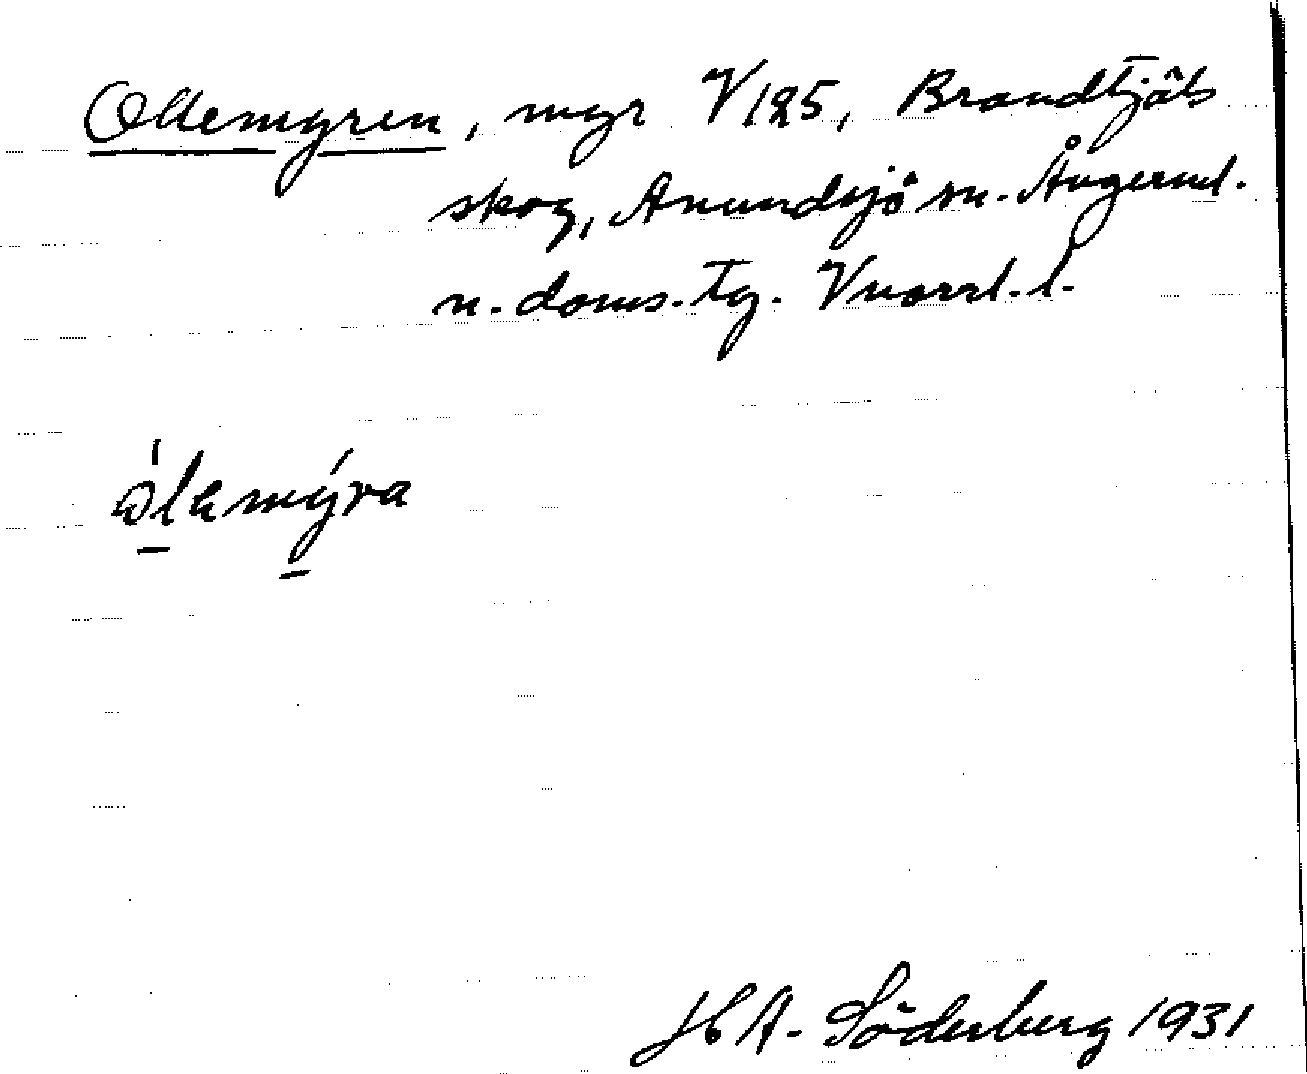 Ollemyren, myr V125, Brandtjäls
skog, Anundsjö sn. Ångerml.
n. doms. tg. Vnorrl. l.
ò̱lamý̱ra
H A. Söderberg 1931